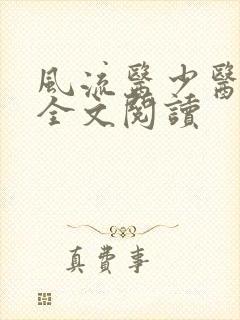 風流醫少醫
全文閱讀
真費事